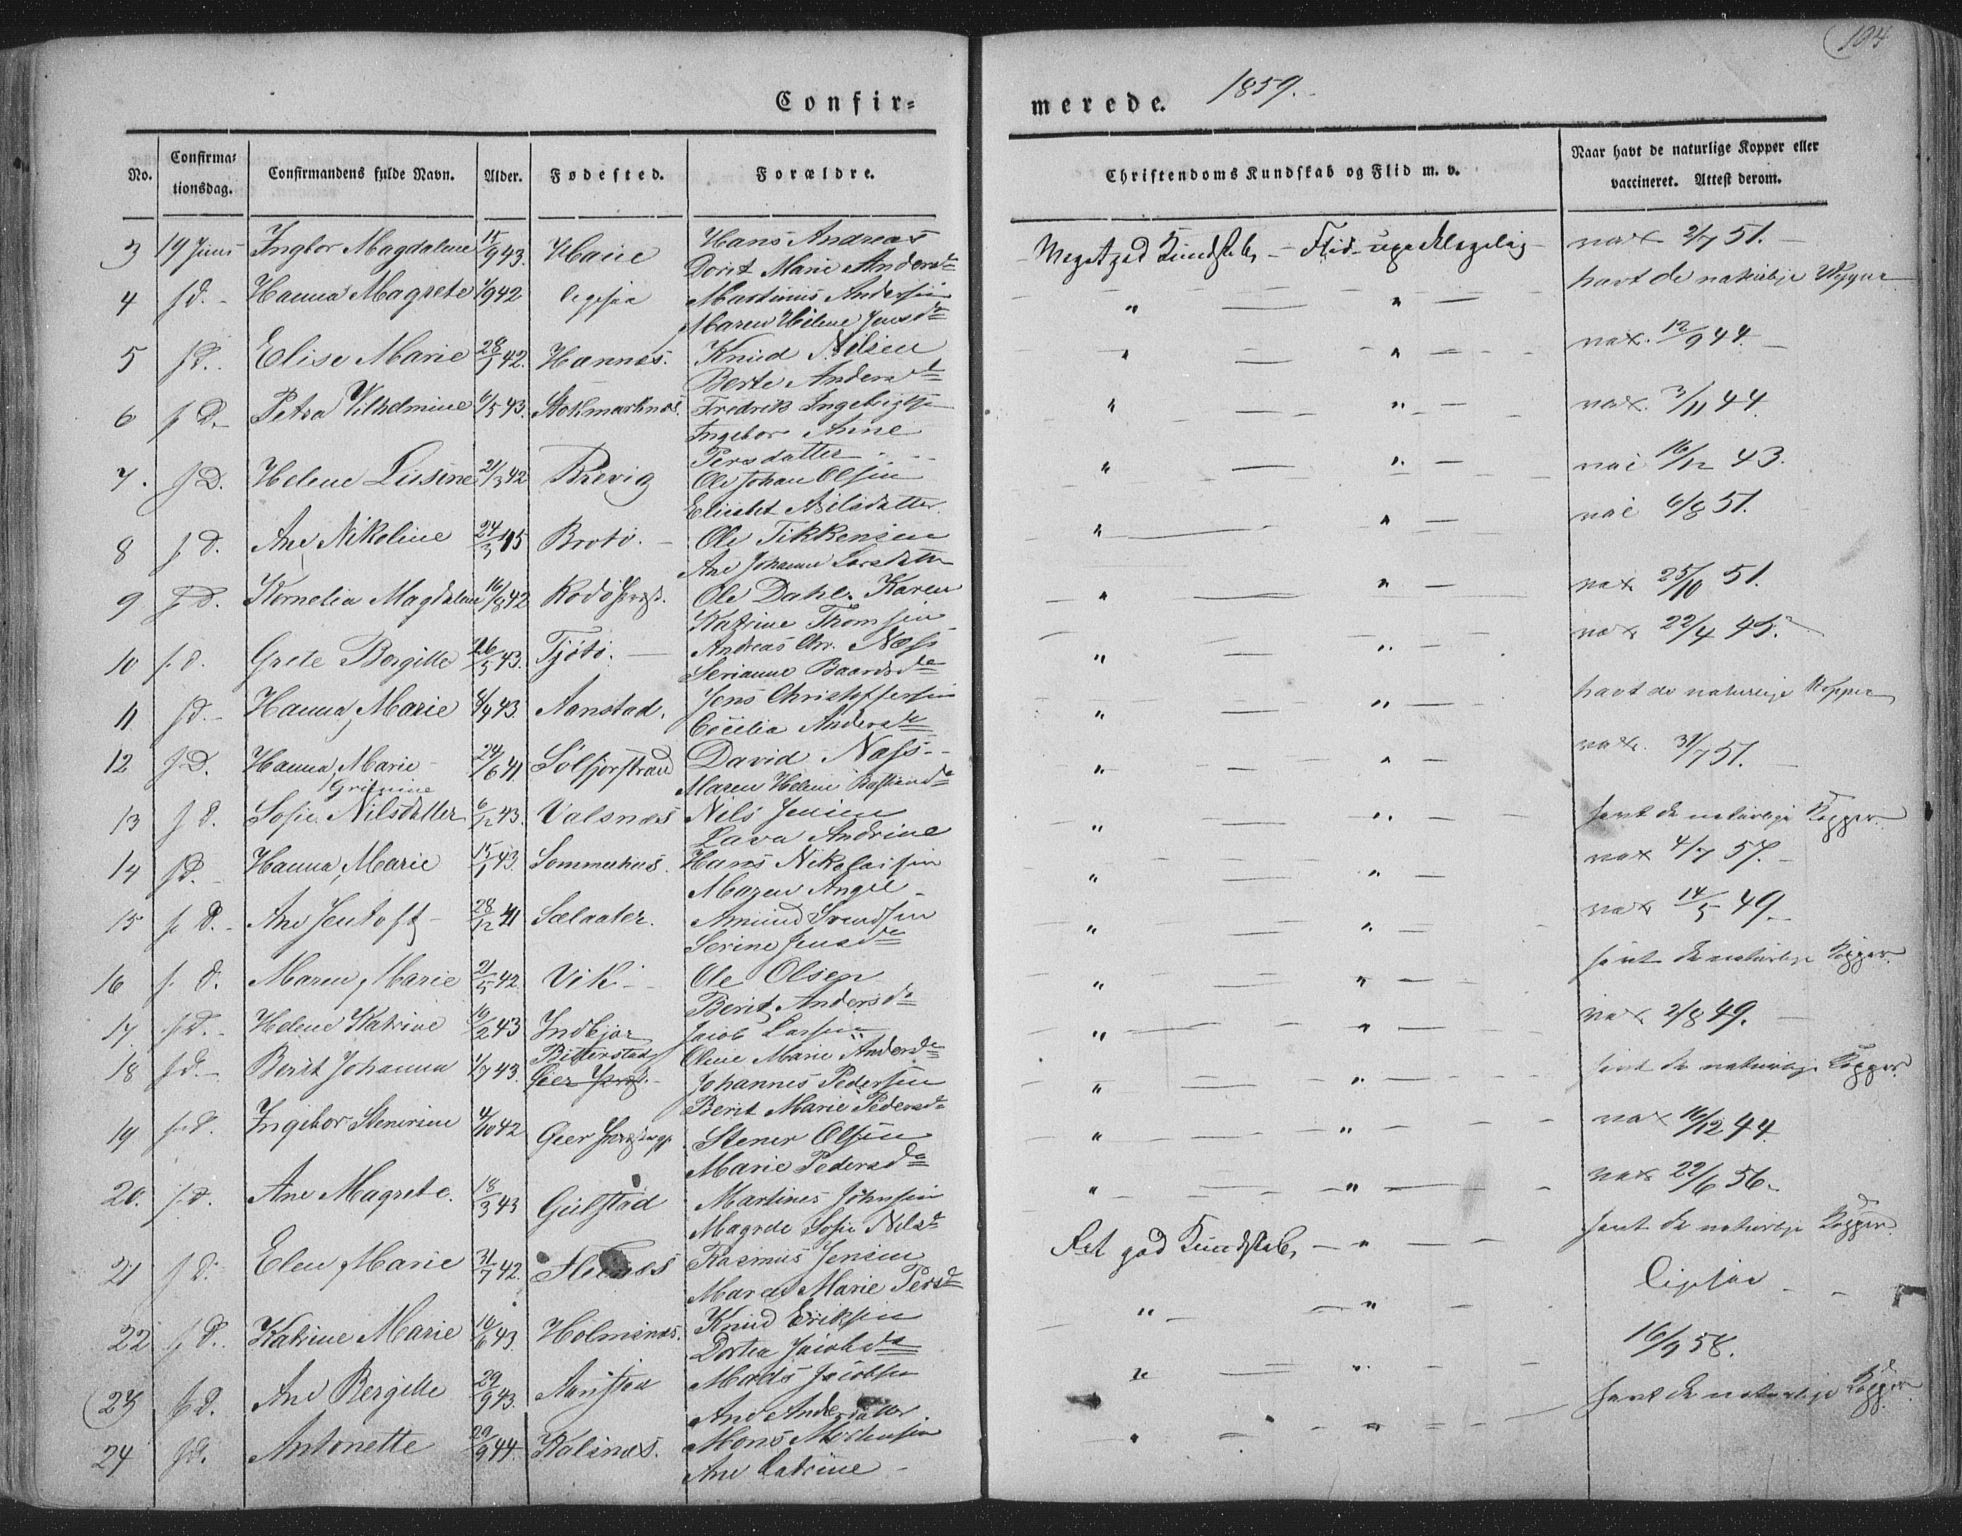 194
Confir=
merede. 1859.
No. Confirma=tionsdag. Confirmandens fulde Navn. Alder. Fødested. Forældre. Christendoms Kundskab og Flid m. v. Naar havt de naturlige Kopper eller vaccineret. Attest derom.
3 19 Juni Ingbor Magdalene 15/9 43. Hans Andreas Dorit Marie Andersd Meget god Kundskab, – Flid upaaklagelig vax 2/7 51.
4 f d. Hanna Magrete 1/9 42 Martinus Andersen Maren Helene Jensd " " havt de naturlige Kopper
5 f D. Elise Marie 28/1 42. Hannes. Knud Nilsen Berte Andersd " " vax. 12/9 44.
6 f D. Petra Vilhelmine 6/5 43. Stokmarknæs. Fredrik Ingebrigts Ingebor Anne Persdatter " " vax. 3/11 44.
7. f D. Helene Lusine 21/3 42 Brevig Ole Johan Olsen Nilsdatter " " vac 16/12 43.
8 f d. Ane Nikoline 24/3 45 Brotø. Ole Tikkensen Ane Johanna Larsdatter " " vac 6/8 51.
9 f D. Kornelia Magdalene 16/8 42 Rødø Præstg. Ole Dahl. Karen Katrine Thomsen " " vax 25/10 51.
10 f. d. Grete Bergitte 26/5 43. Tjøtø. Andreas Chr. Næss Serianne Baardsd " " vax 22/4 45.
11 f d. Hanna Marie 4/9 43. Aanstad. Jens Christoffersen Cecilia Andersd " " havt de naturlige Kopper
12 f D. Hanna Marie 24/6 41 Solfjorstrand David Næss Maren Helene " " vax. 31/7 51.
13 f d. Sofie Nilsdatter 6/12 43. Valsnæs Nils Jensen Lava Andrine " " havt de naturlige Kopper.
14 f d. Hanna Marie 15/1 43. Sommerhus. Hans Nikolaisen Maren Angel " " vax 4/7 57.
15 f. D. Ane Jentoft 28/12 41 Sælaater. Amund Svendsen Serine Jensd " " vax 14/5 49.
16 f. d. Maren Marie 21/5 42. Vik Ole Olsen Berit Andersd " " havt de naturlige Kopper.
17. f. D. Helene Katrine 10/2 43 Indbjor Jacob Larsen Oline Marie Andersd " " vax 2/8 49.
18 f d. Berit Johanna 1/7 43. Bitterstad Gier Præstg. Johannes Pedersen Berit Marie Pedersd " " havt de naturlige Kopper.
19 f. d. Ingebor Stenerine 4/10 42 Gier Præstegj. Stener Olsen Marie Pedersd " " vax 16/12 44.
20. f. d. Ane Magrete. 18/3 43 Gulstad Martines Johnsen Magrete Sofie Nilsd " " vax 22/6 56.
21 f d. Elen Marie 31/7 42. Rasmus Jensen Maret Marie Persd Ret god Kundskab, " havt de naturlige Kopper.
22 f D. Katrine Marie 10/6 43 Holmenes. Knud Eriksen Dortea Jacobsd " " ligesaa
23 f D. Ane Bergitte 29/9 43. Aanstad Mads Jacobsen Ane Andersdatter. " " 16/9 58.
24 f d. Antonette 29/9 44. Kalsnæs. Mons Mortensen Ane Catrine " " havt de naturlige Kopper.